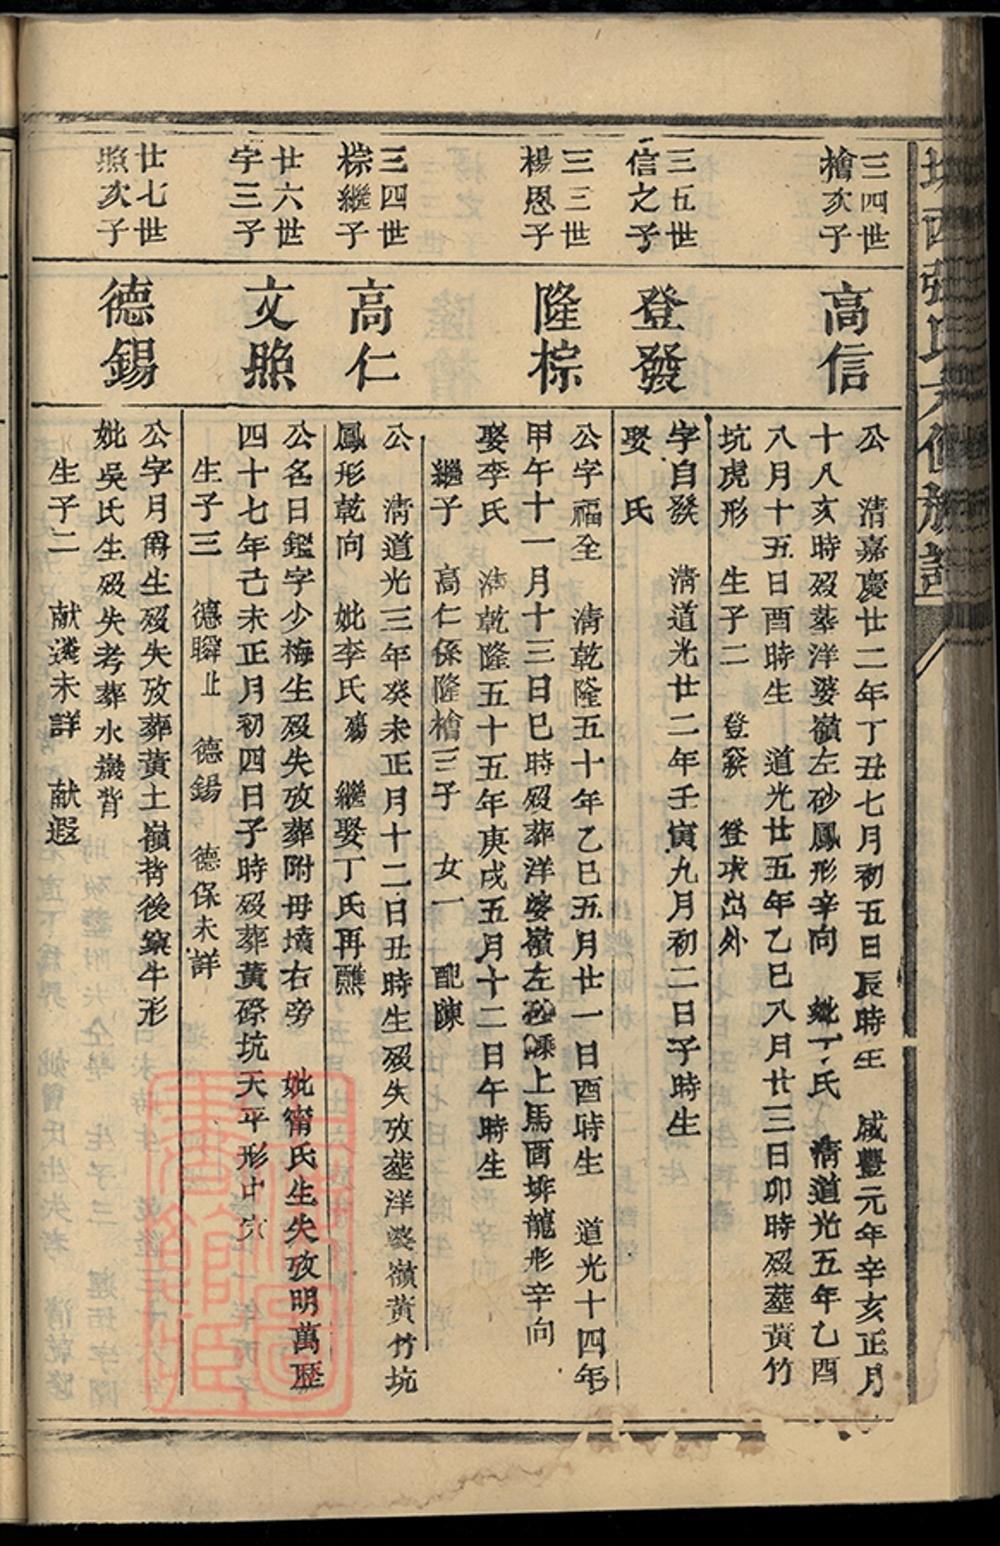 西張氏六修族譜
三四世
檜亥子
高信
公 清嘉慶廿二年丁丑七月初五日辰時生 咸豐元年辛亥正月
十八亥時殁塟洋婆嶺左砂鳳形辛向 妣丁氏 清道光五年乙酉
八月十五日酉時生 道光廿五年乙巳八月廿三日卯時殁塟黃竹
坑虎形 生子二 登發 登求出外
三五世
信之子
登發
字自發 清道光廿二年壬寅九月初二日子時生
娶 氏
三三世
楊恩子
隆棕
公字福全 清乾隆五十年乙巳五月廿一日酉時生 道光十四年
甲午十一月十三日巳時殁葬洋婆嶺左砂 上馬酉排龍形辛向
娶李氏 清乾隆五十五年庚戌五月十二日午時生
繼子 高仁係隆檜三子 女一 配陳
三四世
棕繼子
高仁
公 清道光三年癸未正月十二日丑時生殁失攷塟洋婆嶺黃竹坑
鳳形乾向 妣李氏殤 繼娶丁氏再醮
廿六世
字三子
文照
公名日鑑字少梅生殁失攷葬附毋墳右旁 妣甯氏生失攷明萬歷
四十七年己未正月初四日子時殁葬黃磜坑天平形中穴
生子三 德瞬止 德錫 德保未詳
廿七世
照亥子
德錫
公字月爵生殁失攷葬黃土嶺背後窠牛形
妣吳氏生殁失考葬水 背
生子二 献 未詳 献遐